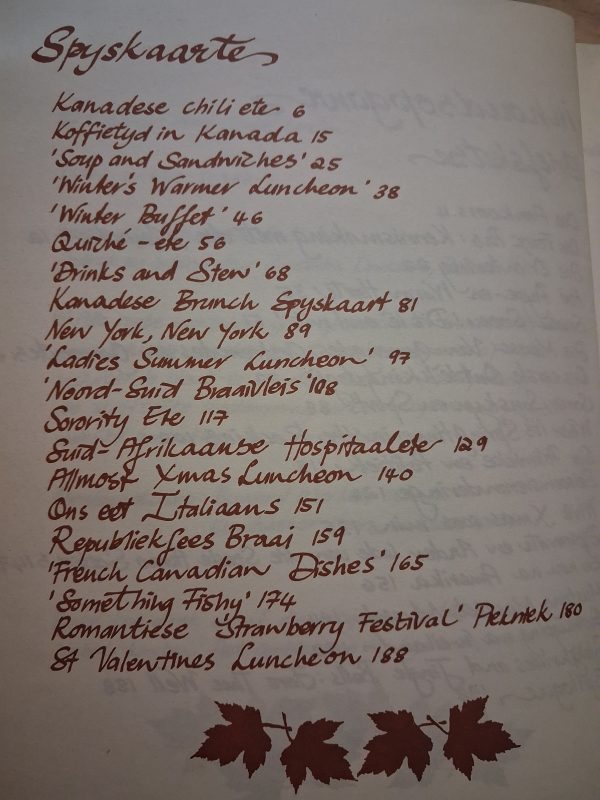 Spyskaarte
Kanadese chili ete 6
Koffietyd in Kanada 15
'Soup and Sandwiches' 25
'Winter's Warmer Luncheon' 38
'Winter Buffet' 46
Quiché - ete 56
'Drinks and Stew' 68
Kanadese Brunch Spyskaart 81
New York, New York 89
'Ladies Summer Luncheon' 97
'Noord-Suid Braaivleis' 108
Sorority Ete 117
Suid-Afrikaanse Hospitaalete 129
Allmost Xmas Luncheon 140
Ons eet Italiaans 151
Republiekfees Braai 159
'French Canadian Dishes' 165
'Something Fishy' 174
Romantiese 'Strawberry Festival' Piekniek 180
St Valentines Luncheon 188